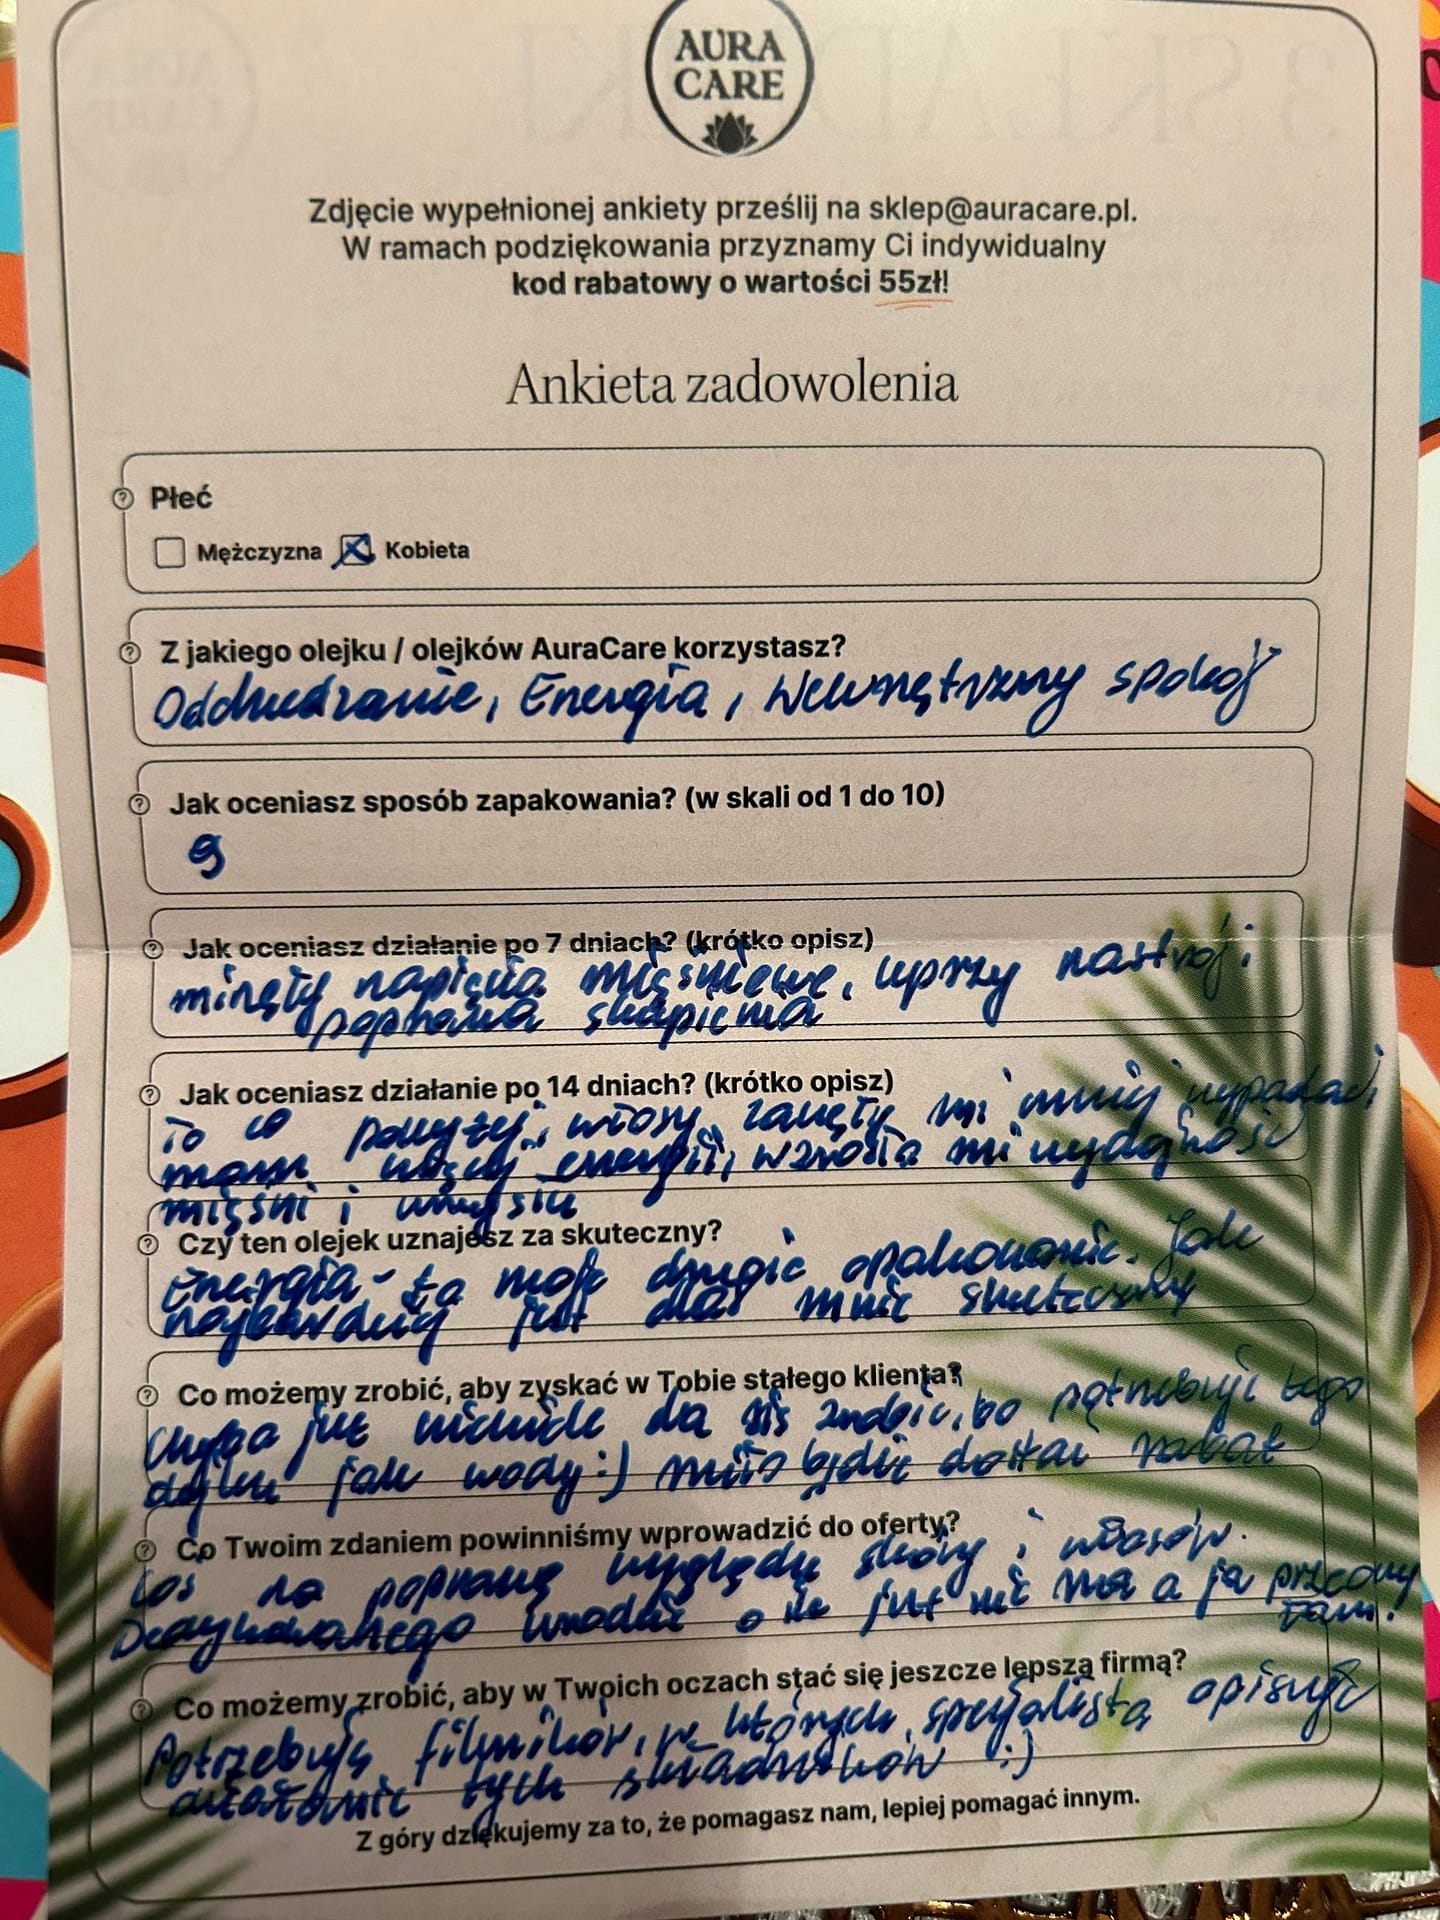 AURA
CARE
Zdjęcie wypełnionej ankiety prześlij na sklep@auracare.pl.
W ramach podziękowania przyznamy Ci indywidualny
kod rabatowy o wartości 55zł!
Ankieta zadowolenia
Płeć
Mężczyzna Kobieta
Z jakiego olejku / olejków AuraCare korzystasz?
Odchudzanie, Energia, Wewnętrzny spokój
Jak oceniasz sposób zapakowania? (w skali od 1 do 10)
9
Jak oceniasz działanie po 7 dniach? (krótko opisz)
minęły napięcia mięśniowe, lepszy nastrój i
poprawa skupienia
Jak oceniasz działanie po 14 dniach? (krótko opisz)
To co powyżej i włosy zaczęły mi mniej wypadać,
mam więcej energii, wzrosła mi wydajność
mięśni i umysłu
Czy ten olejek uznajesz za skuteczny?
Energia - to moje drugie opakowanie. Jak
najbardziej jest dla mnie skuteczny
Co możemy zrobić, aby zyskać w Tobie stałego klienta?
Chyba już niewiele da się zrobić, bo potrzebuję tego
olejku jak wody :) miło będzie dostać rabat
Co Twoim zdaniem powinniśmy wprowadzić do oferty?
Coś na poprawę wyglądu skóry i włosów.
Dedykowanego urodzie o ile już nie ma a ja przeoczyłam!
Co możemy zrobić, aby w Twoich oczach stać się jeszcze lepszą firmą?
Potrzebuję filmików, w których specjalista opisuje
działanie tych składników :)
Z góry dziękujemy za to, że pomagasz nam, lepiej pomagać innym.